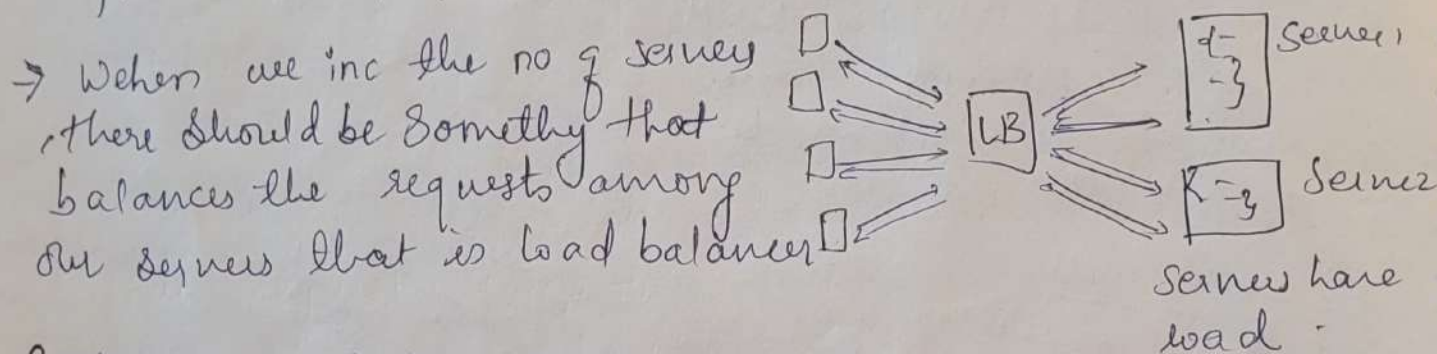 → When we inc the no of servers
, there should be something that
balances the requests among
our servers that is load balancer
LB
Server1
Server2
servers have
load.